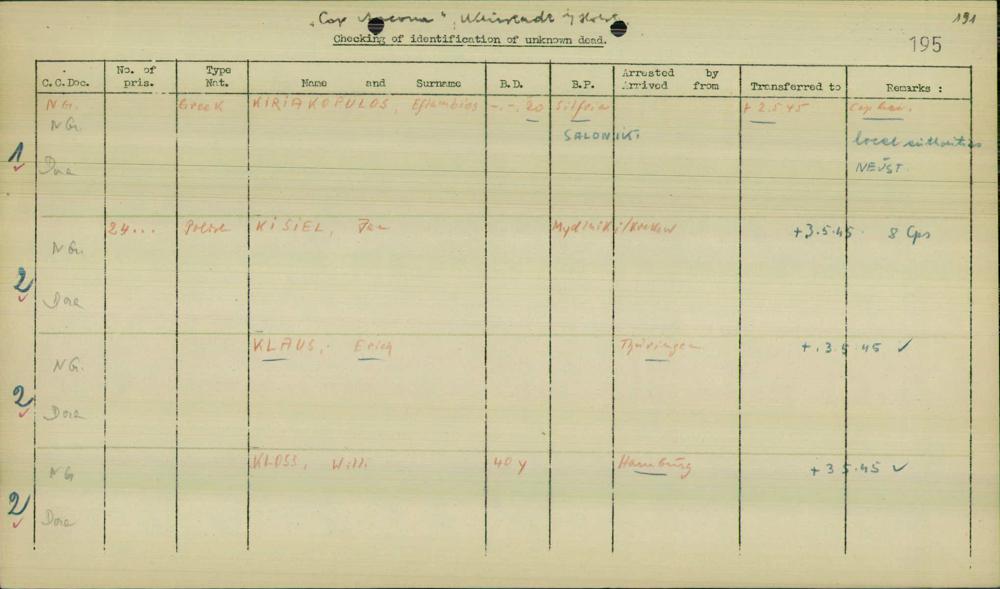 "Cap Arcona", Neustadt i/Holst. 191
Checking of identification of unknown dead. 195
C.C.Doc. No. of pris. Type Nat. Name and Surname B.D. B.P. Arrested by Arrived from Transferred to Remarks :
N G. Greek KIRIAKOPULOS, -.-.20 + 2.5.45
NG. SALONIKI local authorities
1 Dora NEUST.
24... Polish KISIEL, Jan Mydlniki/Krakow +3.5.45. 8 Cps
NG.
2 Dora
KLAUS, Erich Thüringen +.3.5.45 ✓
NG.
2 Dora
KLOSS, Willi 40 y Hamburg + 3 5.45 ✓
NG
2 Dora